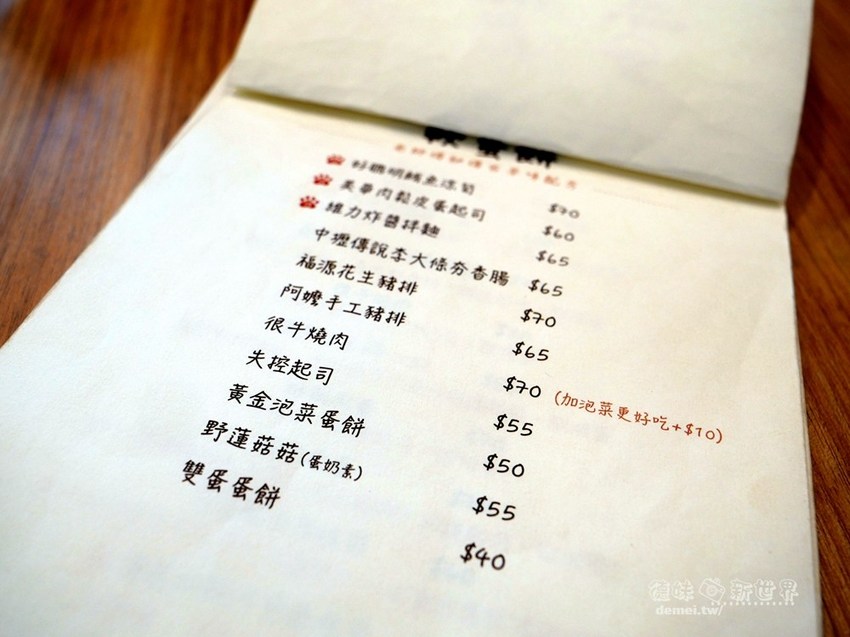 好聰明鮪魚涼筍 $70
美華肉鬆皮蛋起司 $60
維力炸醬拌麵 $65
中壢傳說李大條夯香腸 $65
福源花生豬排 $70
阿嬤手工豬排 $65
很牛燒肉 $70 (加泡菜更好吃+$10)
失控起司 $55
黃金泡菜蛋餅 $50
野蓮菇菇(蛋奶素) $55
雙蛋蛋餅 $40
味 新世界
demei.tw/